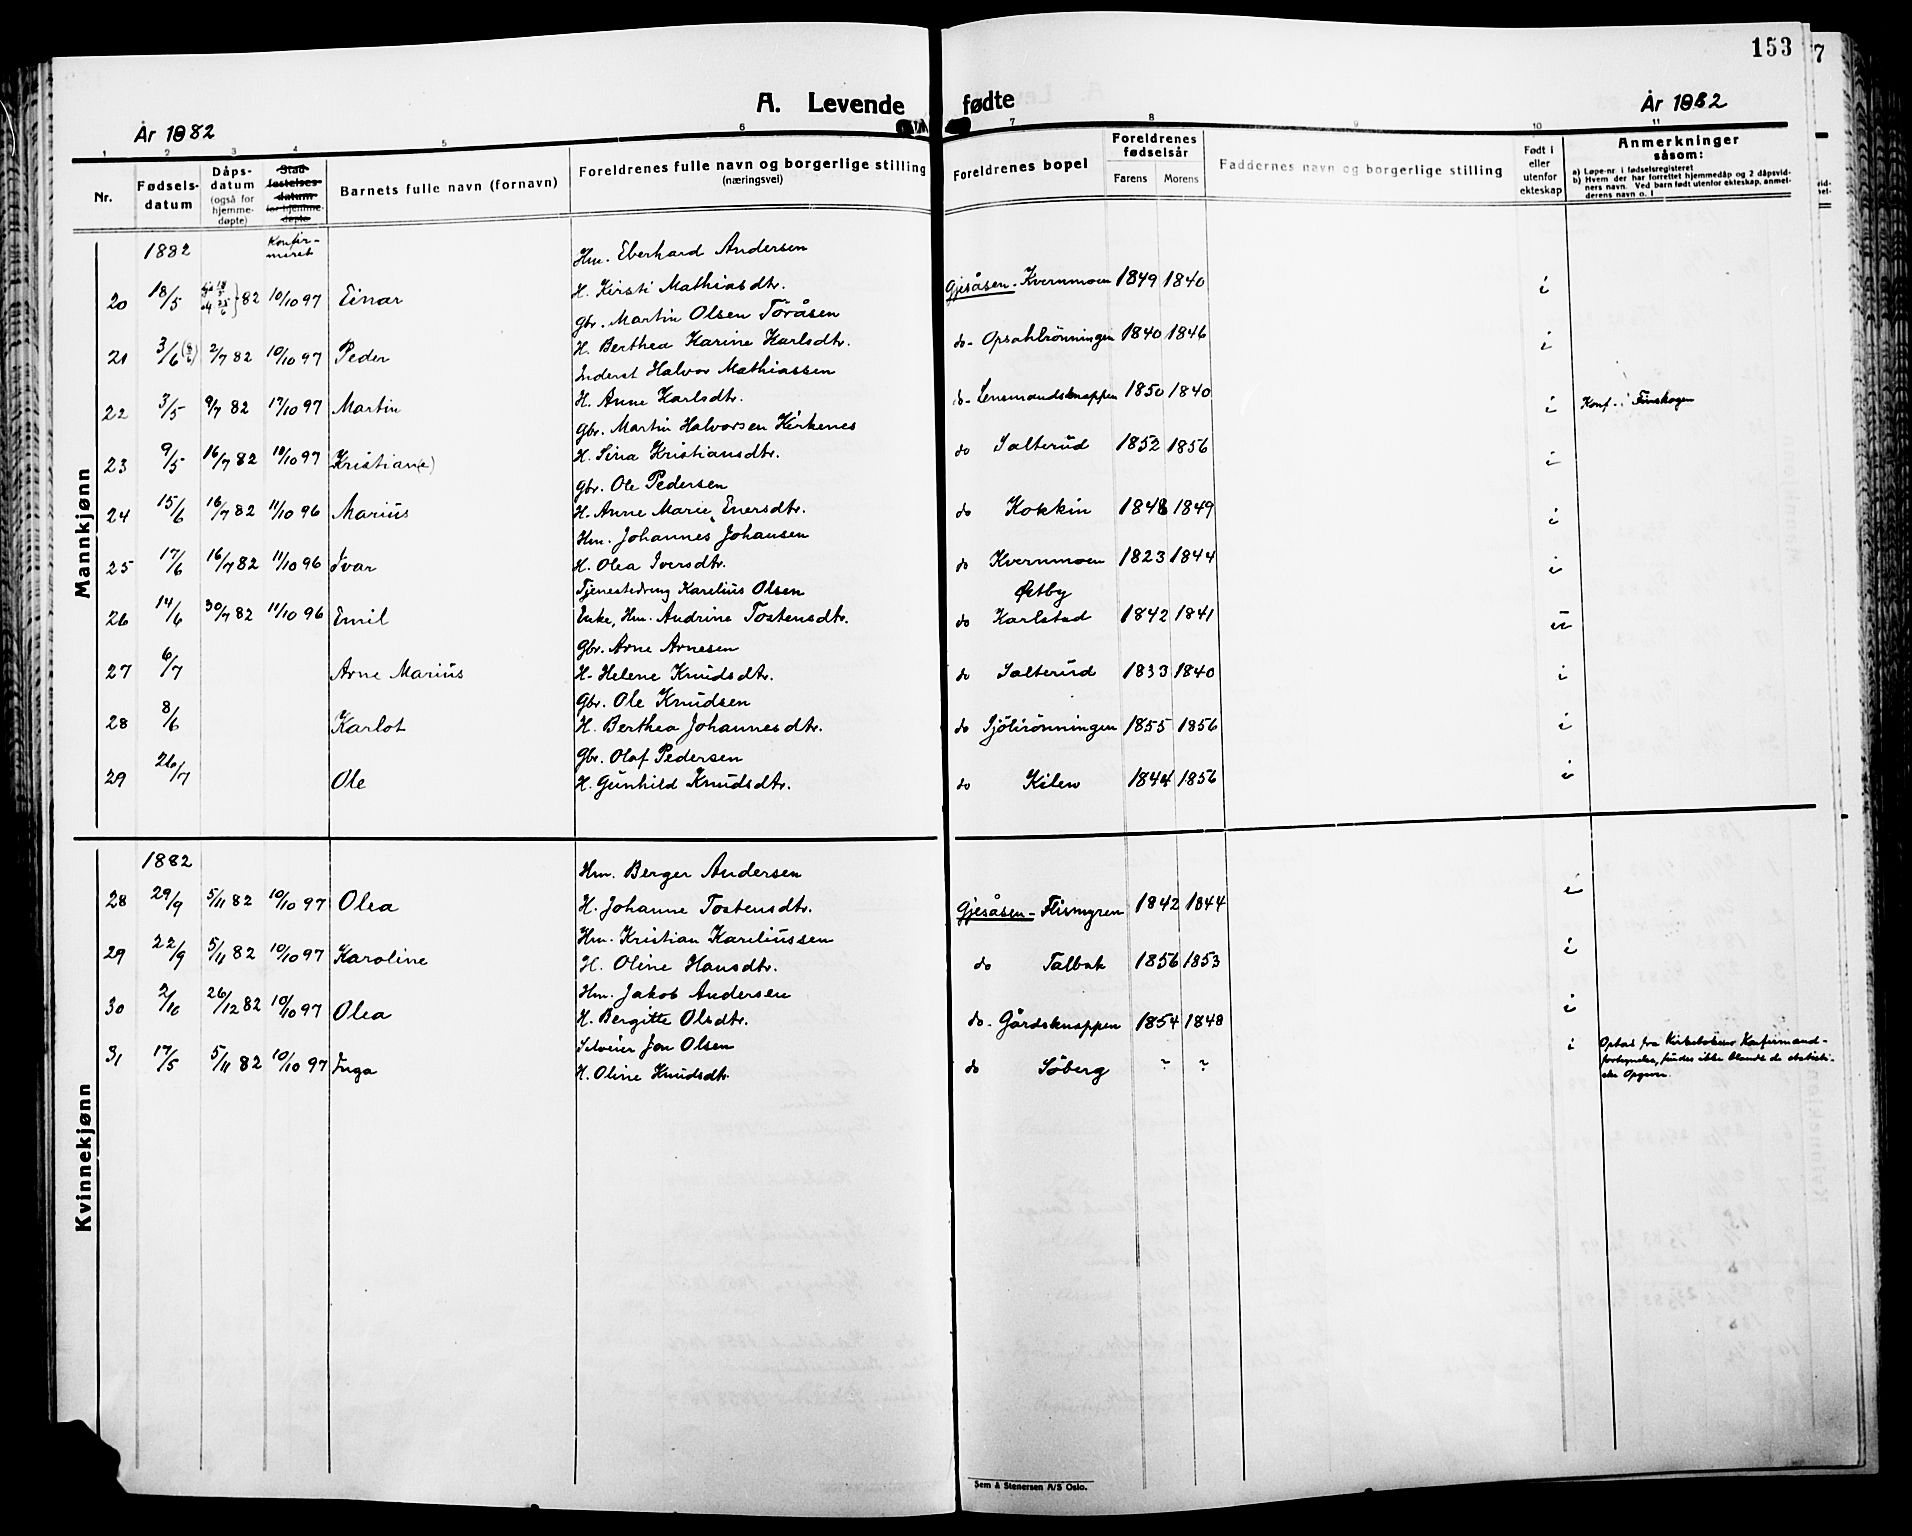 153
A. Levende fødte
År 1882
År 1882
1 2 3 4 5 6 7 8 9 10 11
Nr.
Fødsels-
datum
Dåps-
datum
(også for
hjemme-
døpte)
Stad
festelses-
datum
for hjemme-
døpte
Barnets fulle navn (fornavn)
Foreldrenes fulle navn og borgerlige stilling
(næringsvei)
Foreldrenes bopel
Foreldrenes
fødselsår
Farens Morens
Faddernes navn og borgerlige stilling
Født i
eller
utenfor
ekteskap
Anmerkninger
såsom:
a) Løpe-nr. i fødselsregisteret
b) Hvem der har forrettet hjemmedåp og 2 dåpsvid-
ners navn. Ved barn født utenfor ekteskap, anmel-
derens navn o. l
Mannkjønn
1882
Konfir-
meret
Hm. Eberhard Andersen
20 18/5 82 10/10 97 Einar H. Kirsti Mathiasdtr. Gjesåsen - Kvernmoen 1849 1840 i
Gbr. Martin Olsen Töråsen
21 3/6 2/7 82 10/10 97 Peder H. Berthea Karine Karlsdtr. do - Opsahlrönningen 1840 1846 i
Inderst Halvor Mathiassen
22 3/5 9/7 82 17/10 97 Martin H. Anne Karlsdtr. do - Lensmandsknappen 1850 1840 i Konf. i Finskogen
Gbr. Martin Halvorsen Kirkenes
23 9/5 16/7 82 10/10 97 Kristian(e) H. Sina Kristiansdtr. do Salterud 1852 1856 i
Gbr. Ole Pedersen
24 15/6 16/7 82 11/10 96 Marius H. Anne Marie Enersdtr. do Kokkin 1848 1849 i
Hm. Johannes Johansen
25 17/6 16/7 82 11/10 96 Ivar H. Olea Iversdtr. do Kvernmoen 1823 1844 i
Tjenestedreng Karelius Olsen Østby
26 14/6 30/7 82 11/10 96 Emil Enke, Hm. Andrine Tostensdtr. do Karlstad 1842 1841 u
Gbr. Arne Arnesen
27 6/7 Arne Marius H. Helene Knudsdtr. do Salterud 1833 1840 i
Gbr. Ole Knudsen
28 8/6 Karlot H. Berthea Johannesdtr. do Sjölirönningen 1855 1856 i
Gbr. Olaf Pedersen
29 26/7 Ole H. Gunhild Knudsdtr. do Kilen 1844 1856 i
Kvinnekjønn
1882
Hm. Berger Andersen
28 29/9 5/11 82 10/10 97 Olea H. Johanne Tostensdtr. Gjesåsen - Flismyren 1842 1844 i
Hm. Kristian Kareliussen
29 22/9 5/11 82 10/10 97 Karoline H. Oline Hansdtr. do Talbak 1856 1853 i
Hm. Jakob Andersen
30 2/10 26/12 82 10/10 97 Olea H. Bergitte Olsdtr. do - Gårdsknappen 1854 1848 i
Selveier Jon Olsen
31 17/5 5/11 82 10/10 97 Inga H. Oline Knudsdtr. do Söberg ? ? i
Optat fra Kirkebokens Konfirmand-
fortegnelse, findes ikke blandt de statisti-
ske Opgaver.
Sem & Stenersen A/S Oslo.